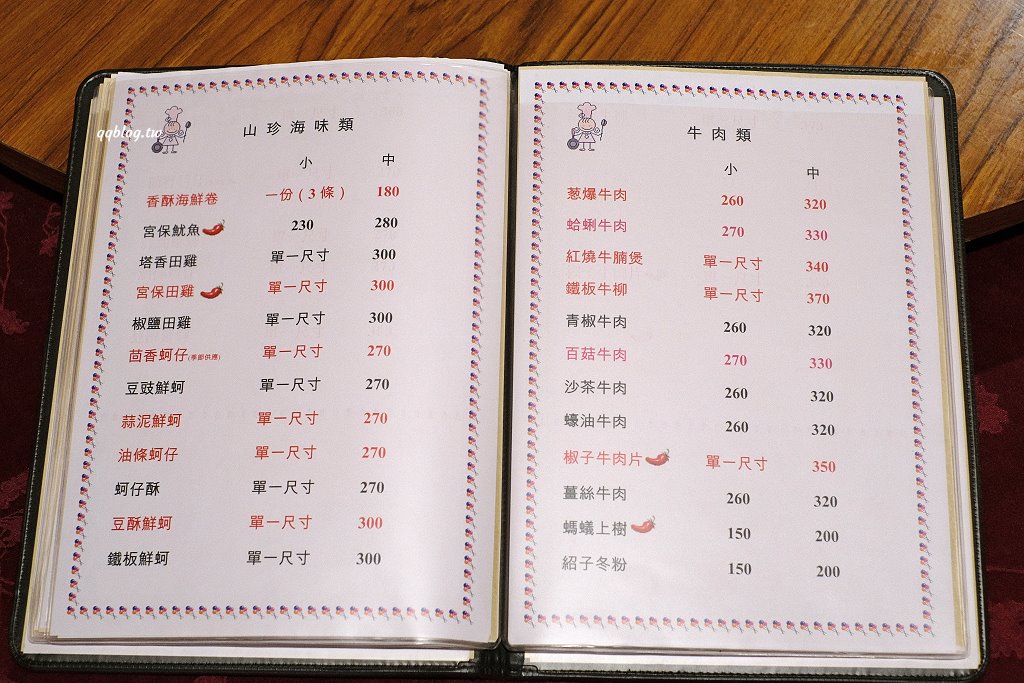 qqblog.tw
山珍海味類
小 中
香酥海鮮卷 一份(3條) 180
宮保魷魚 230 280
塔香田雞 單一尺寸 300
宮保田雞 單一尺寸 300
椒鹽田雞 單一尺寸 300
茴香蚵仔(季節供應) 單一尺寸 270
豆豉鮮蚵 單一尺寸 270
蒜泥鮮蚵 單一尺寸 270
油條蚵仔 單一尺寸 270
蚵仔酥 單一尺寸 270
豆酥鮮蚵 單一尺寸 300
鐵板鮮蚵 單一尺寸 300
牛肉類
小 中
葱爆牛肉 260 320
蛤蜊牛肉 270 330
紅燒牛腩煲 單一尺寸 340
鐵板牛柳 單一尺寸 370
青椒牛肉 260 320
百菇牛肉 270 330
沙茶牛肉 260 320
蠔油牛肉 260 320
椒子牛肉片 單一尺寸 350
薑絲牛肉 260 320
螞蟻上樹 150 200
紹子冬粉 150 200